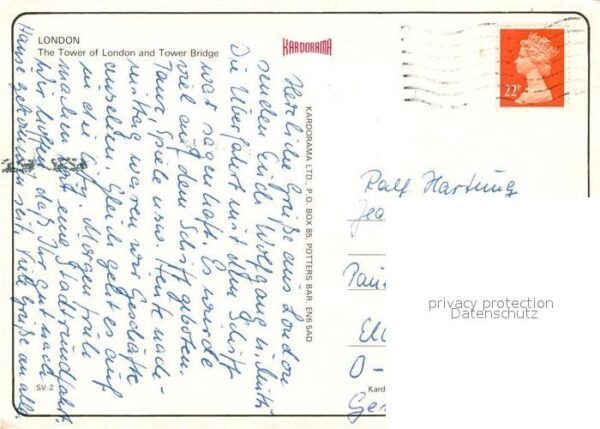 LONDON
The Tower of London and Tower Bridge
KARDORAMA
22P
Herzliche Grüße aus London
senden Euch Wolfgang u.
Die Überfahrt mit dem Schiff
war sagenhaft. Es wurde
viel auf dem Schiff geboten.
Tanz, Spiele usw. Heute nach-
mittag waren wir Geschäfte
ansehen. Gleich geht es auf
in die City. Morgen früh
machen wir eine Stadtrundfahrt.
Wir hoffen, daß Ihr gut nach
Hause gekommen seit. Viele Grüße an alle.
KARDORAMA LTD., P.O. BOX 85, POTTERS BAR, EN6 5AD
Ralf Hartung
Jea
Pau
El
O-
Ge
privacy protection
Datenschutz
SV-2
Kard